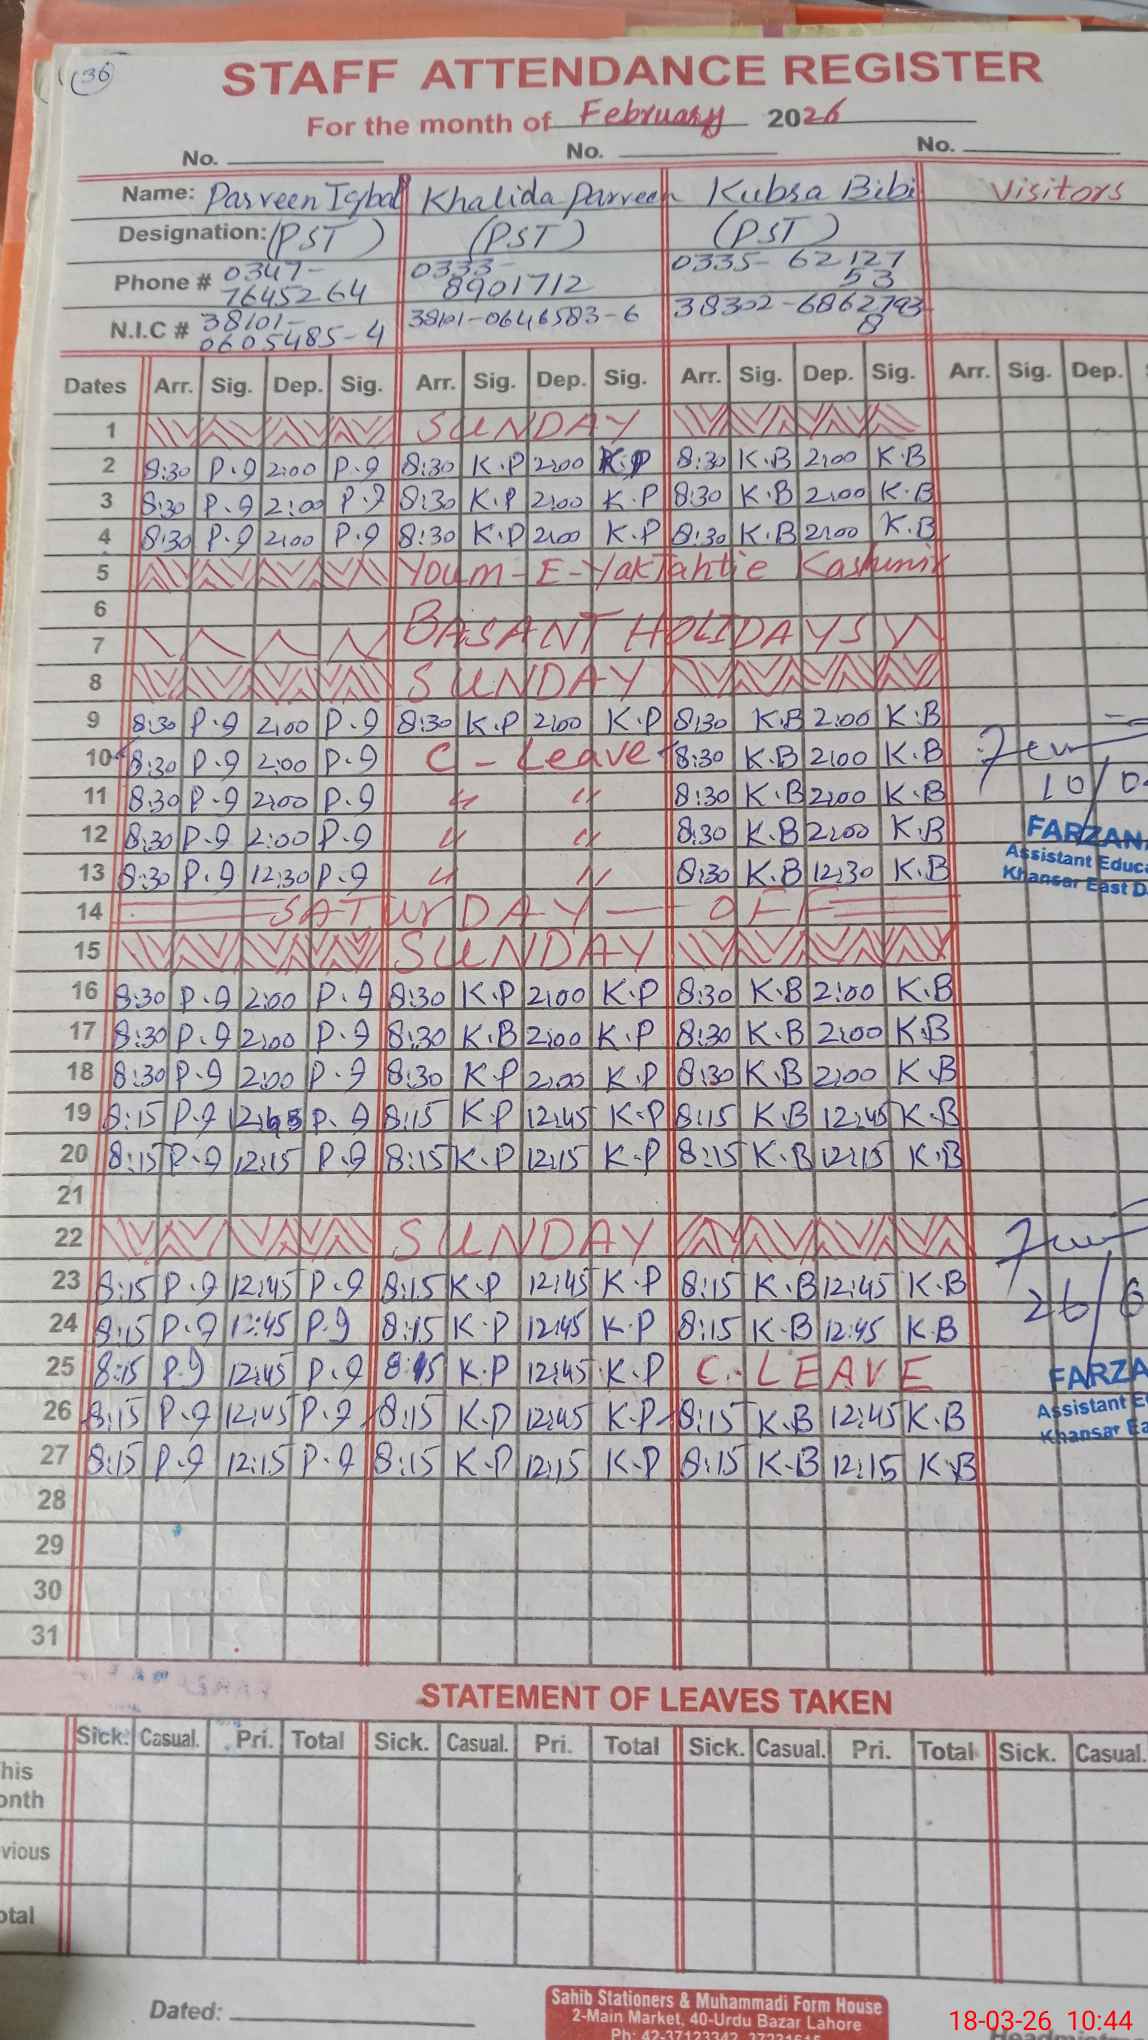 36
STAFF ATTENDANCE REGISTER
For the month of February 2026
No. No. No.
Name: Parveen Iqbal Khalida Parveen Kubra Bibi Visitors
Designation: (PST) (PST) (PST)
Phone # 0347- 7645264 0333- 8901712 0335-62127 53
N.I.C # 38101- 0605485-4 38101-0646583-6 38302-6862793 8
Dates Arr. Sig. Dep. Sig. Arr. Sig. Dep. Sig. Arr. Sig. Dep. Sig. Arr. Sig. Dep.
1 SUNDAY
2 8:30 P.I 2:00 P.I 8:30 K.P 2:00 K.P 8:30 K.B 2:00 K.B
3 8:30 P.I 2:00 P.I 8:30 K.P 2:00 K.P 8:30 K.B 2:00 K.B
4 8:30 P.I 2:00 P.I 8:30 K.P 2:00 K.P 8:30 K.B 2:00 K.B
5 Youm-E-Yakjahtie Kashmir
6
7 BASANT HOLIDAYS
8 SUNDAY
9 8:30 P.I 2:00 P.I 8:30 K.P 2:00 K.P 8:30 K.B 2:00 K.B
10 8:30 P.I 2:00 P.I C-Leave 8:30 K.B 2:00 K.B
11 8:30 P.I 2:00 P.I " " 8:30 K.B 2:00 K.B 10/0
12 8:30 P.I 2:00 P.I " " 8:30 K.B 2:00 K.B FARZAN
13 8:30 P.I 12:30 P.I " " 8:30 K.B 12:30 K.B Assistant Educ
Khansar East D
14 SATURDAY - OFF
15 SUNDAY
16 8:30 P.I 2:00 P.I 8:30 K.P 2:00 K.P 8:30 K.B 2:00 K.B
17 8:30 P.I 2:00 P.I 8:30 K.B 2:00 K.P 8:30 K.B 2:00 K.B
18 8:30 P.I 2:00 P.I 8:30 K.P 2:00 K.P 8:30 K.B 2:00 K.B
19 8:15 P.I 12:45 P.I 8:15 K.P 12:45 K.P 8:15 K.B 12:45 K.B
20 8:15 P.I 12:15 P.I 8:15 K.P 12:15 K.P 8:15 K.B 12:15 K.B
21
22 SUNDAY
23 8:15 P.I 12:45 P.I 8:15 K.P 12:45 K.P 8:15 K.B 12:45 K.B
24 8:15 P.I 12:45 P.I 8:15 K.P 12:45 K.P 8:15 K.B 12:45 K.B 26/
25 8:15 P.I 12:45 P.I 8:15 K.P 12:45 K.P C.LEAVE FARZA
26 8:15 P.I 12:45 P.I 8:15 K.P 12:45 K.P 8:15 K.B 12:45 K.B Assistant E
Khansar Ea
27 8:15 P.I 12:15 P.I 8:15 K.P 12:15 K.P 8:15 K.B 12:15 K.B
28
29
30
31
STATEMENT OF LEAVES TAKEN
Sick. Casual. Pri. Total Sick. Casual. Pri. Total Sick. Casual. Pri. Total Sick. Casual.
his
onth
vious
otal
Dated:
Sahib Stationers & Muhammadi Form House
2-Main Market, 40-Urdu Bazar Lahore
Ph: 42-37123342
18-03-26 10:44